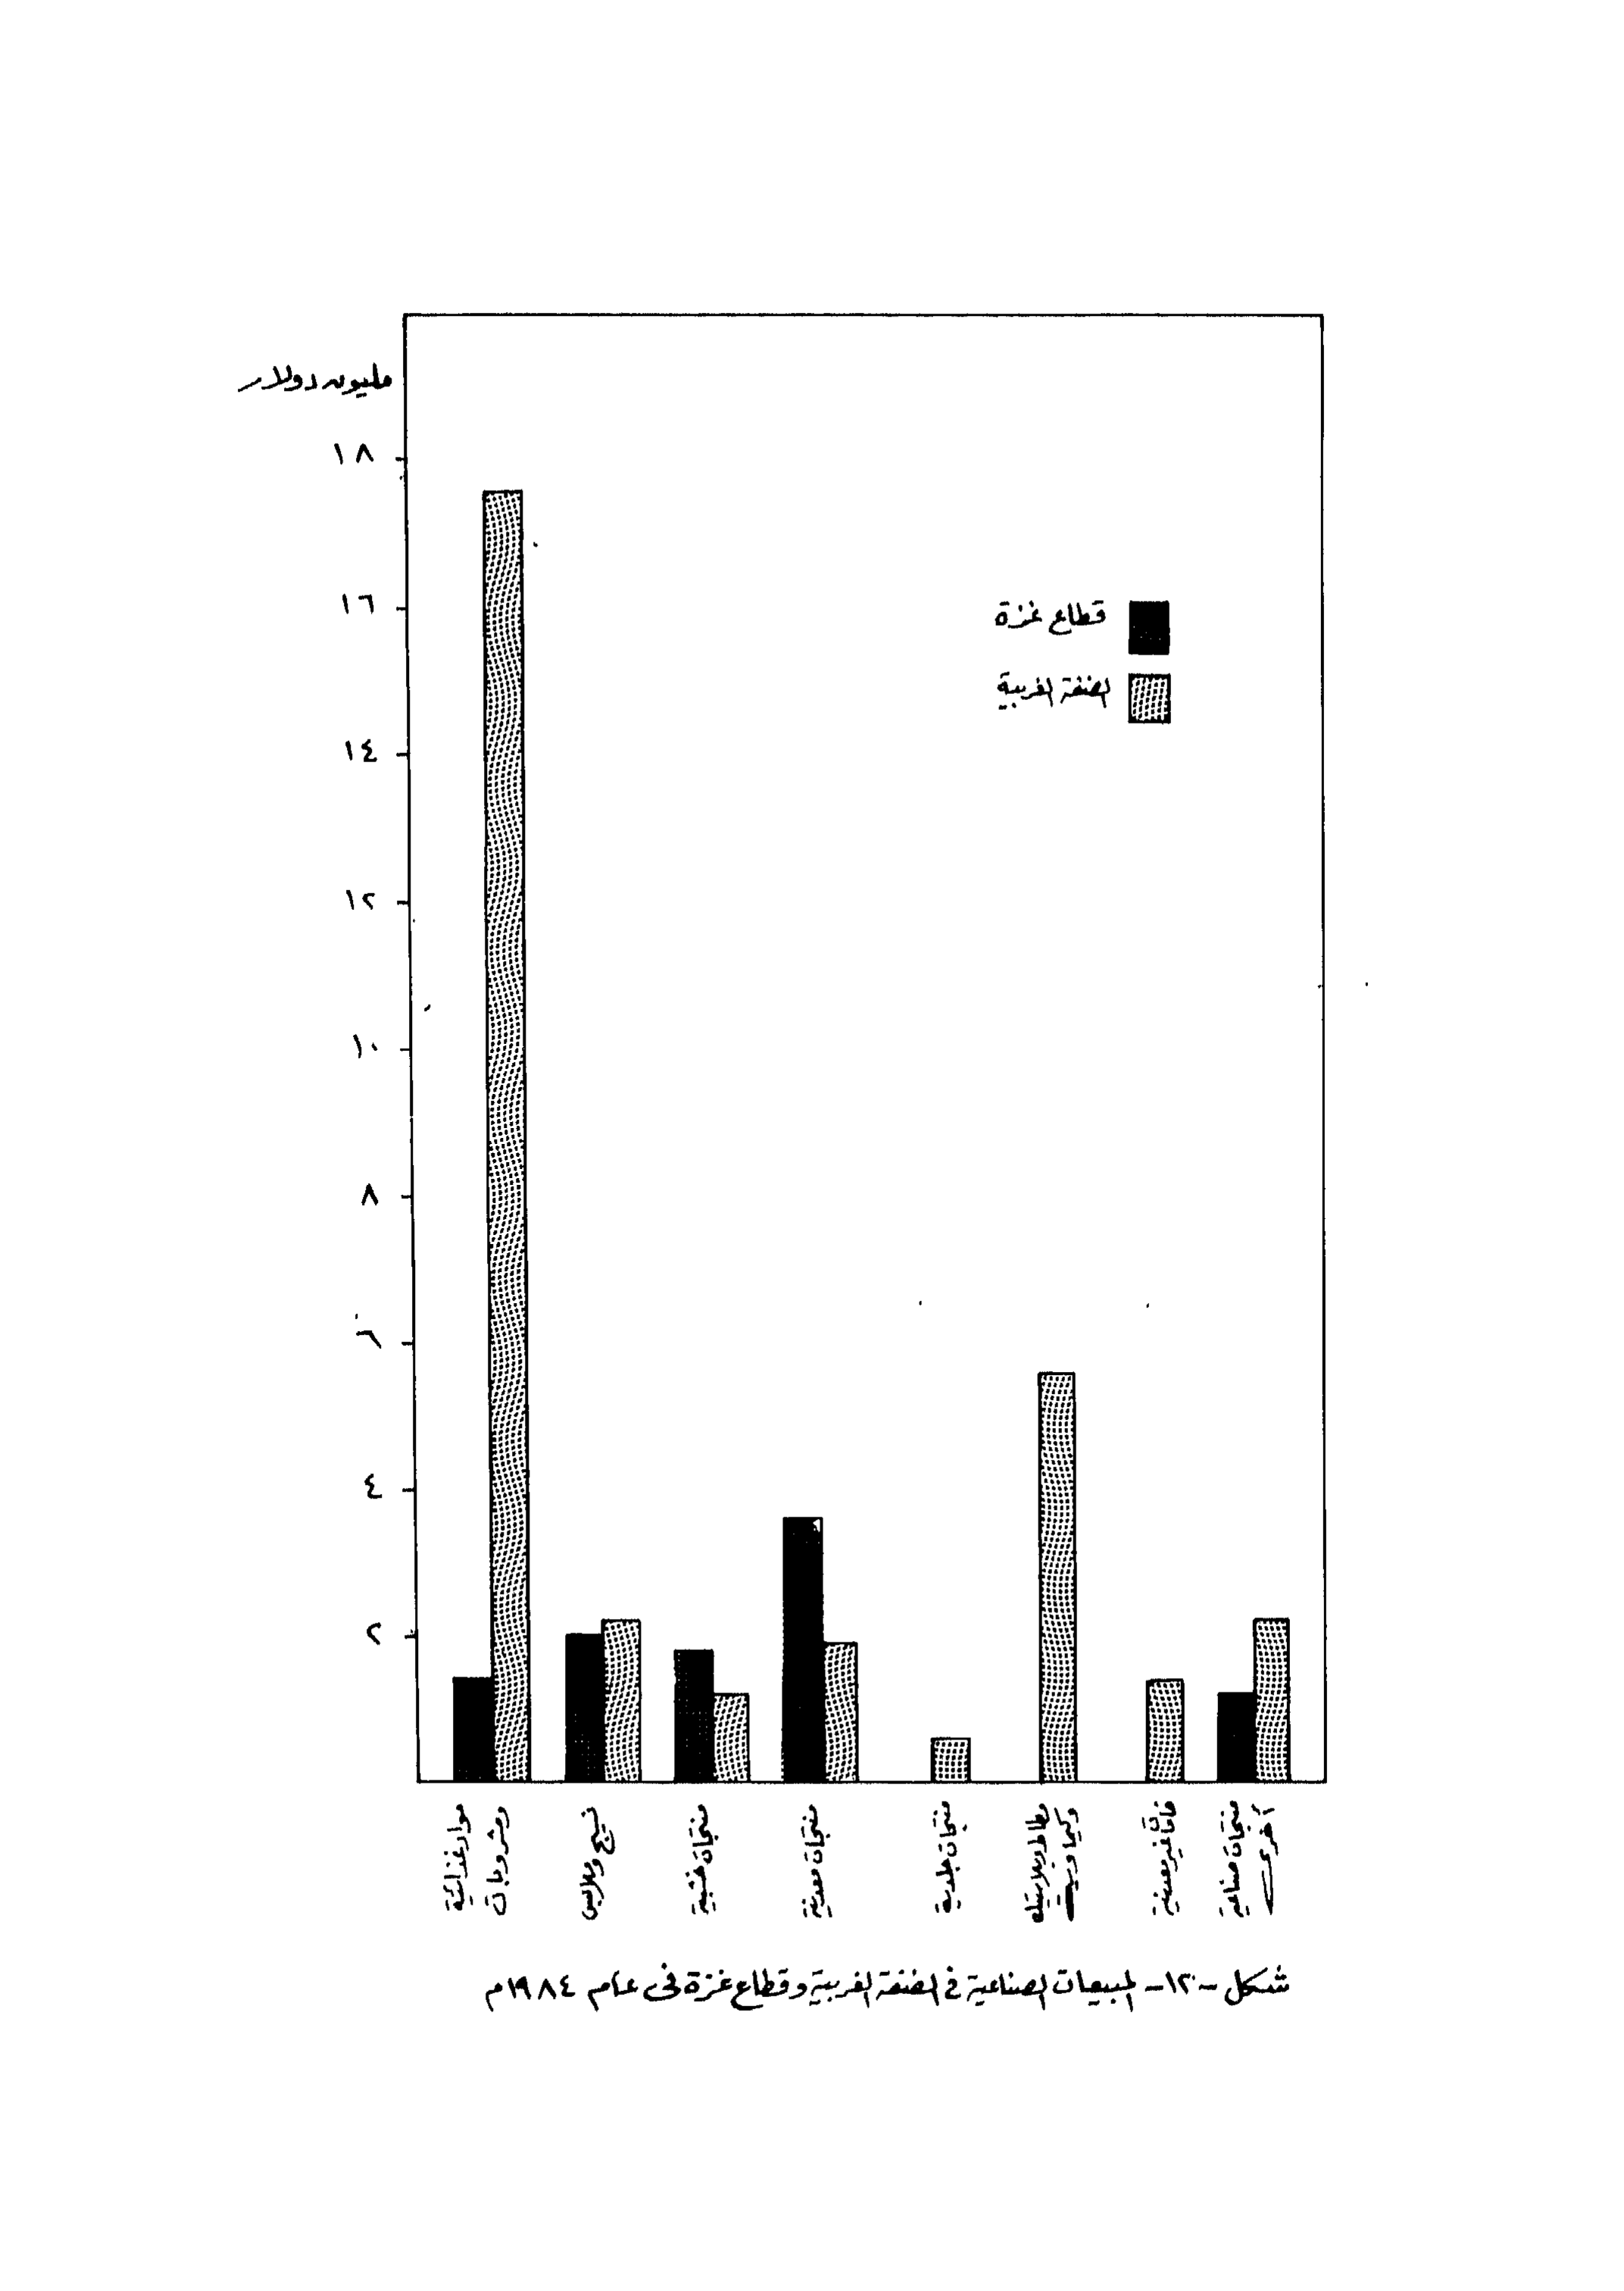 مليون دولار
١٨
١٦
١٤
١٢
١٠
٨
٦
٤
٢
قطاع غزة
الضفة الغربية
مواد غذائية
ومشروبات
نسيج وملابس
منتجات خشبية
منتجات معدنية
منتجات جلدية
مطاط وبلاستيك
وكيماويات
خامات غير معدنية
منتجات صناعية
أخرى
شكل -١٢- المبيعات الصناعية في الضفة الغربية وقطاع غزة فى عام ١٩٨٤م